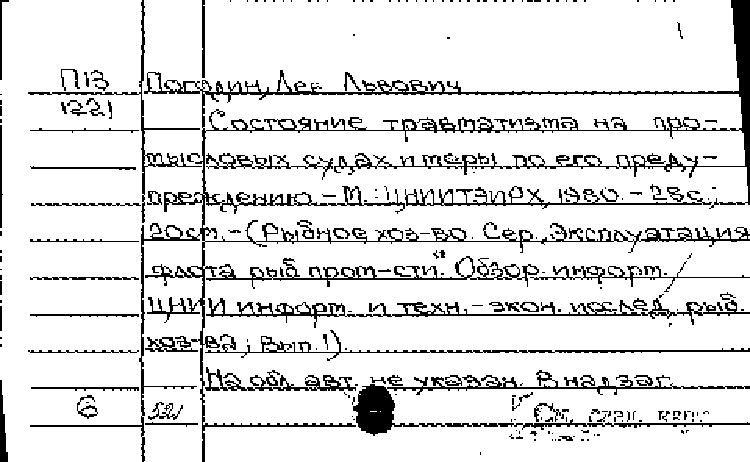 1
П13 Погодин, Лев Львович
1221 Состояние травматизма на про-
мысловых судах и меры по его преду-
преждению. - М.: ЦНИИТЭИРХ, 1980. - 28с.;
20см. - (Рыбное хоз-во. Сер. „Эксплуатация
флота рыб пром-сти". Обзор. информ.
ЦНИИ информ. и техн.-экон. исслед. рыб.
хоз-ва; Вып. 1).
На обл. авт. не указан. В надзаг.
6 521 См. след. карт.